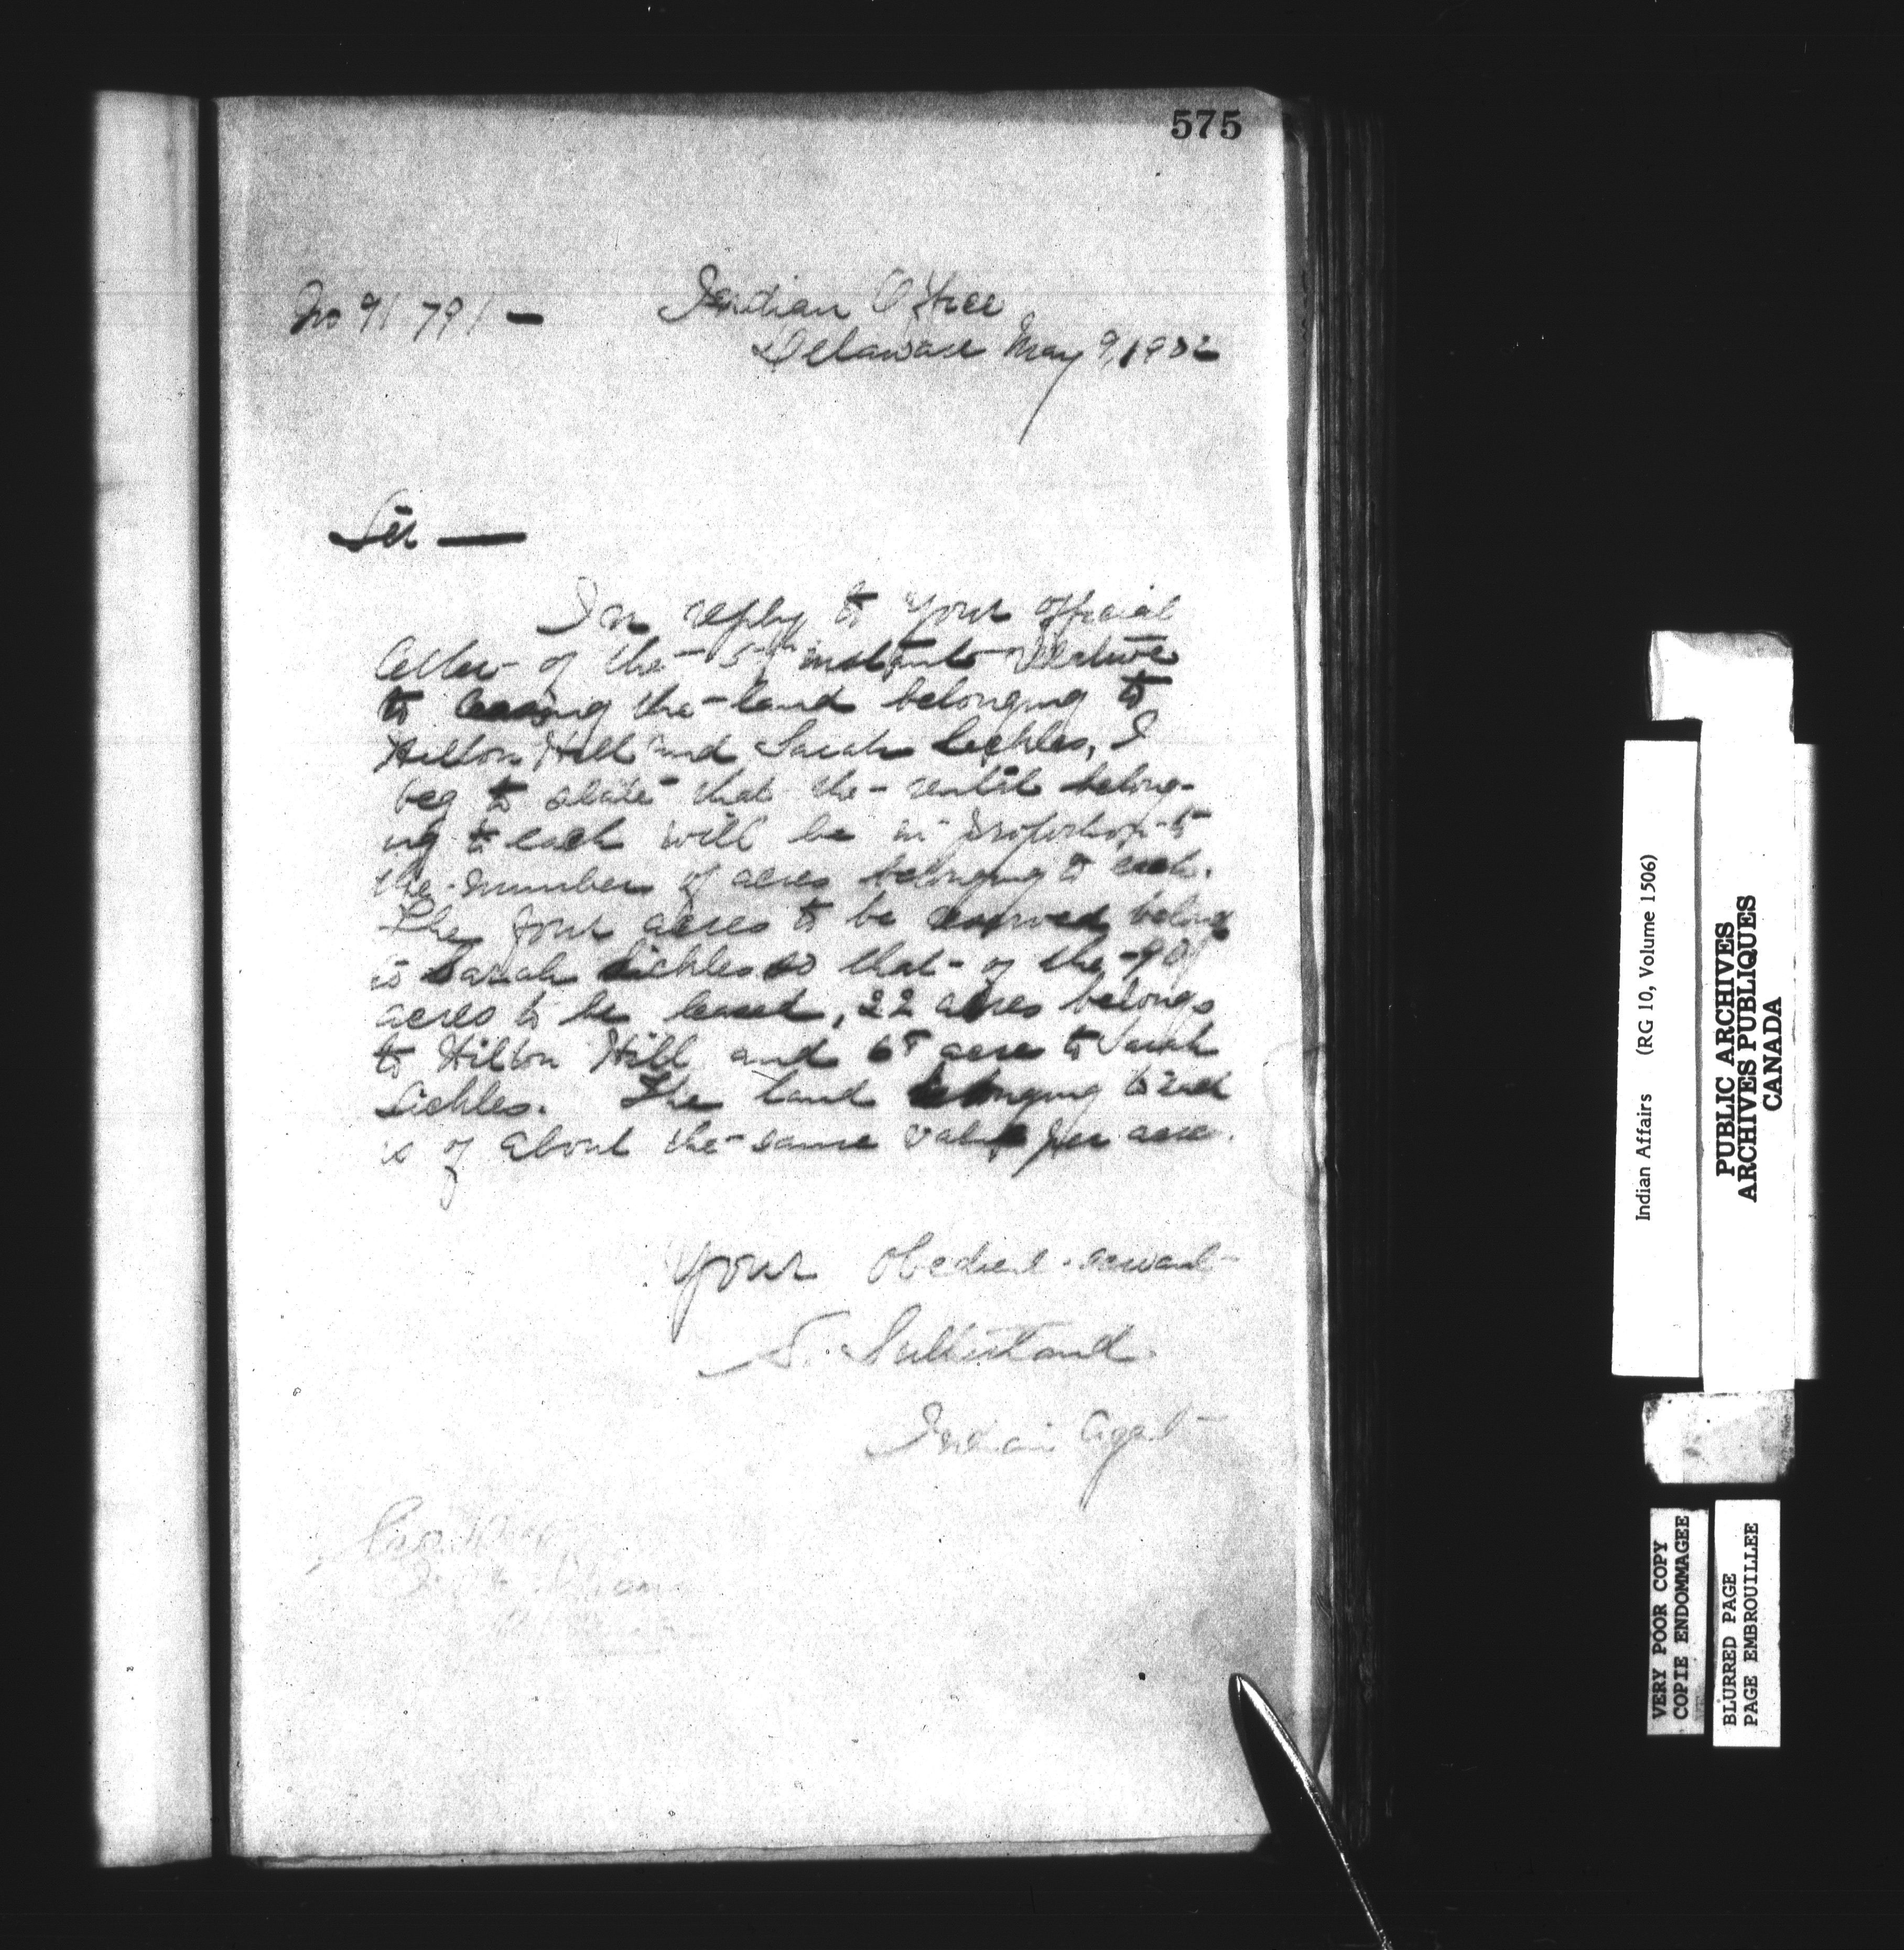 575
No 91-791 -
Indian Office
Delaware May 9, 1902
Sir —
In reply to your official
letter of the 5th instant relative
to leasing the land belonging to
Hilton Hill and Sarah Sickles, I
beg to state that the rental belong-
ing to each will be in proportion to
the number of acres belonging to each.
The four acres to be reserved belong
to Sarah Sickles so that of the
acres to be leased, 22 acres belongs
to Hilton Hill and acre to Sarah
Sickles. The land belonging to each
is of about the same value per acre.
Your obedient servant
S. Sutherland
Indian Agent
Indian Affairs (RG 10, Volume 1506)
PUBLIC ARCHIVES
ARCHIVES PUBLIQUES
CANADA
VERY POOR COPY
COPIE ENDOMMAGEE
BLURRED PAGE
PAGE EMBROUILLEE